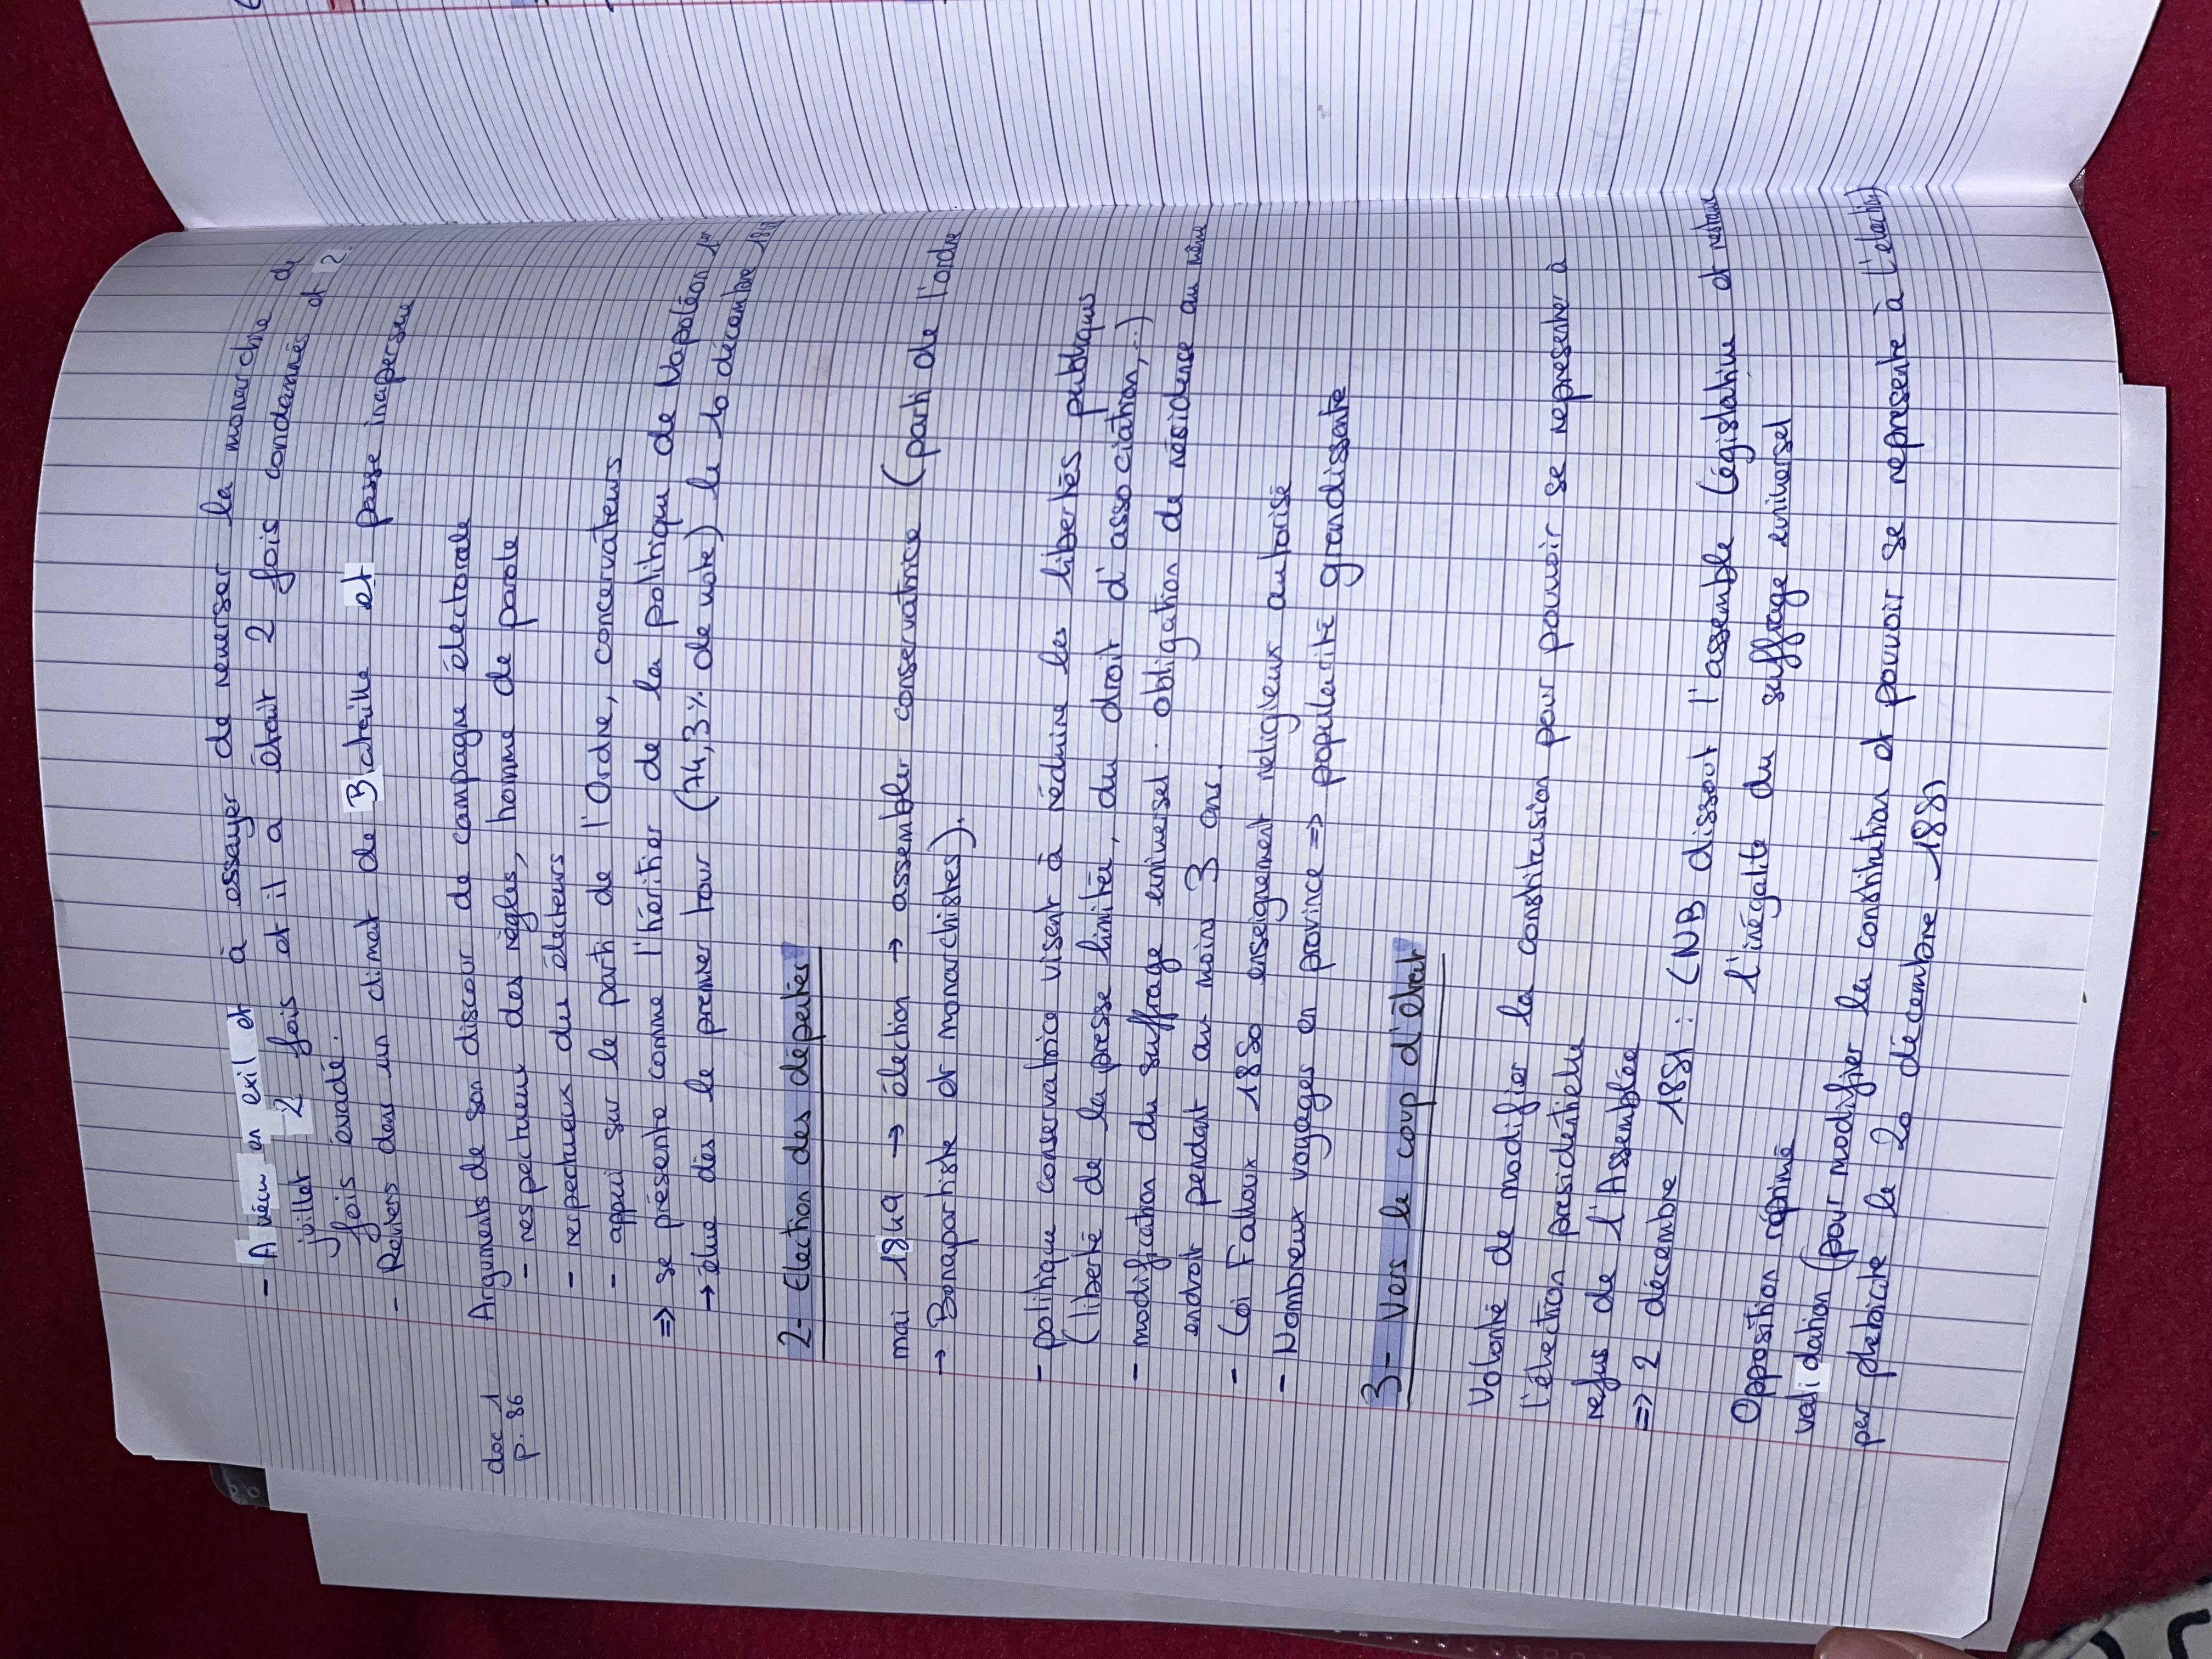 - A vécu en exil et à essayer de renverser la monarchie de
juillet 2 fois et il a était 2 fois condamnés et 2
fois évadé.
- Reviens dans un climat de Bataille et passe inapersue
doc 1
p. 86
Arguments de son discour de campagne électorale
- respectueux des règles, homme de parole
- respectueux des électeurs
- appui sur le parti de l'Ordre, concervateurs
=> se présente comme l'héritier de la politique de Napoléon 1er
→ élue dès le premier tour (74,3% de vote) le 10 décembre
2- Election des députés
mai 1849 → élection → assembler conservatrice (parti de l'ordre
→ Bonapartiste et monarchistes).
- politique conservatrice visent à réduire les libertés publiques
(liberté de la presse limitée, du droit d'association,...)
- modification du suffrage universel. obligation de résidence au même
endroit pendant au moins 3 ans.
- Loi Falloux 1850 enseignement religieux autorisé
- Nombreux voyages en province => popularité grandissante
3- Vers le coup d'état
Volonté de modifier la constitusion pour pouvoir se représenter à
l'élection présidentielle
refus de l'Assemblée
=> 2 décembre 1851 : LNB dissout l'assemblé législative et restaure
l'inégalité du suffrage universel
Opposition réprimé
validation (pour modifier la constitution et pouvoir se représenté à l'élection)
par plébicite le 20 décembre 1851